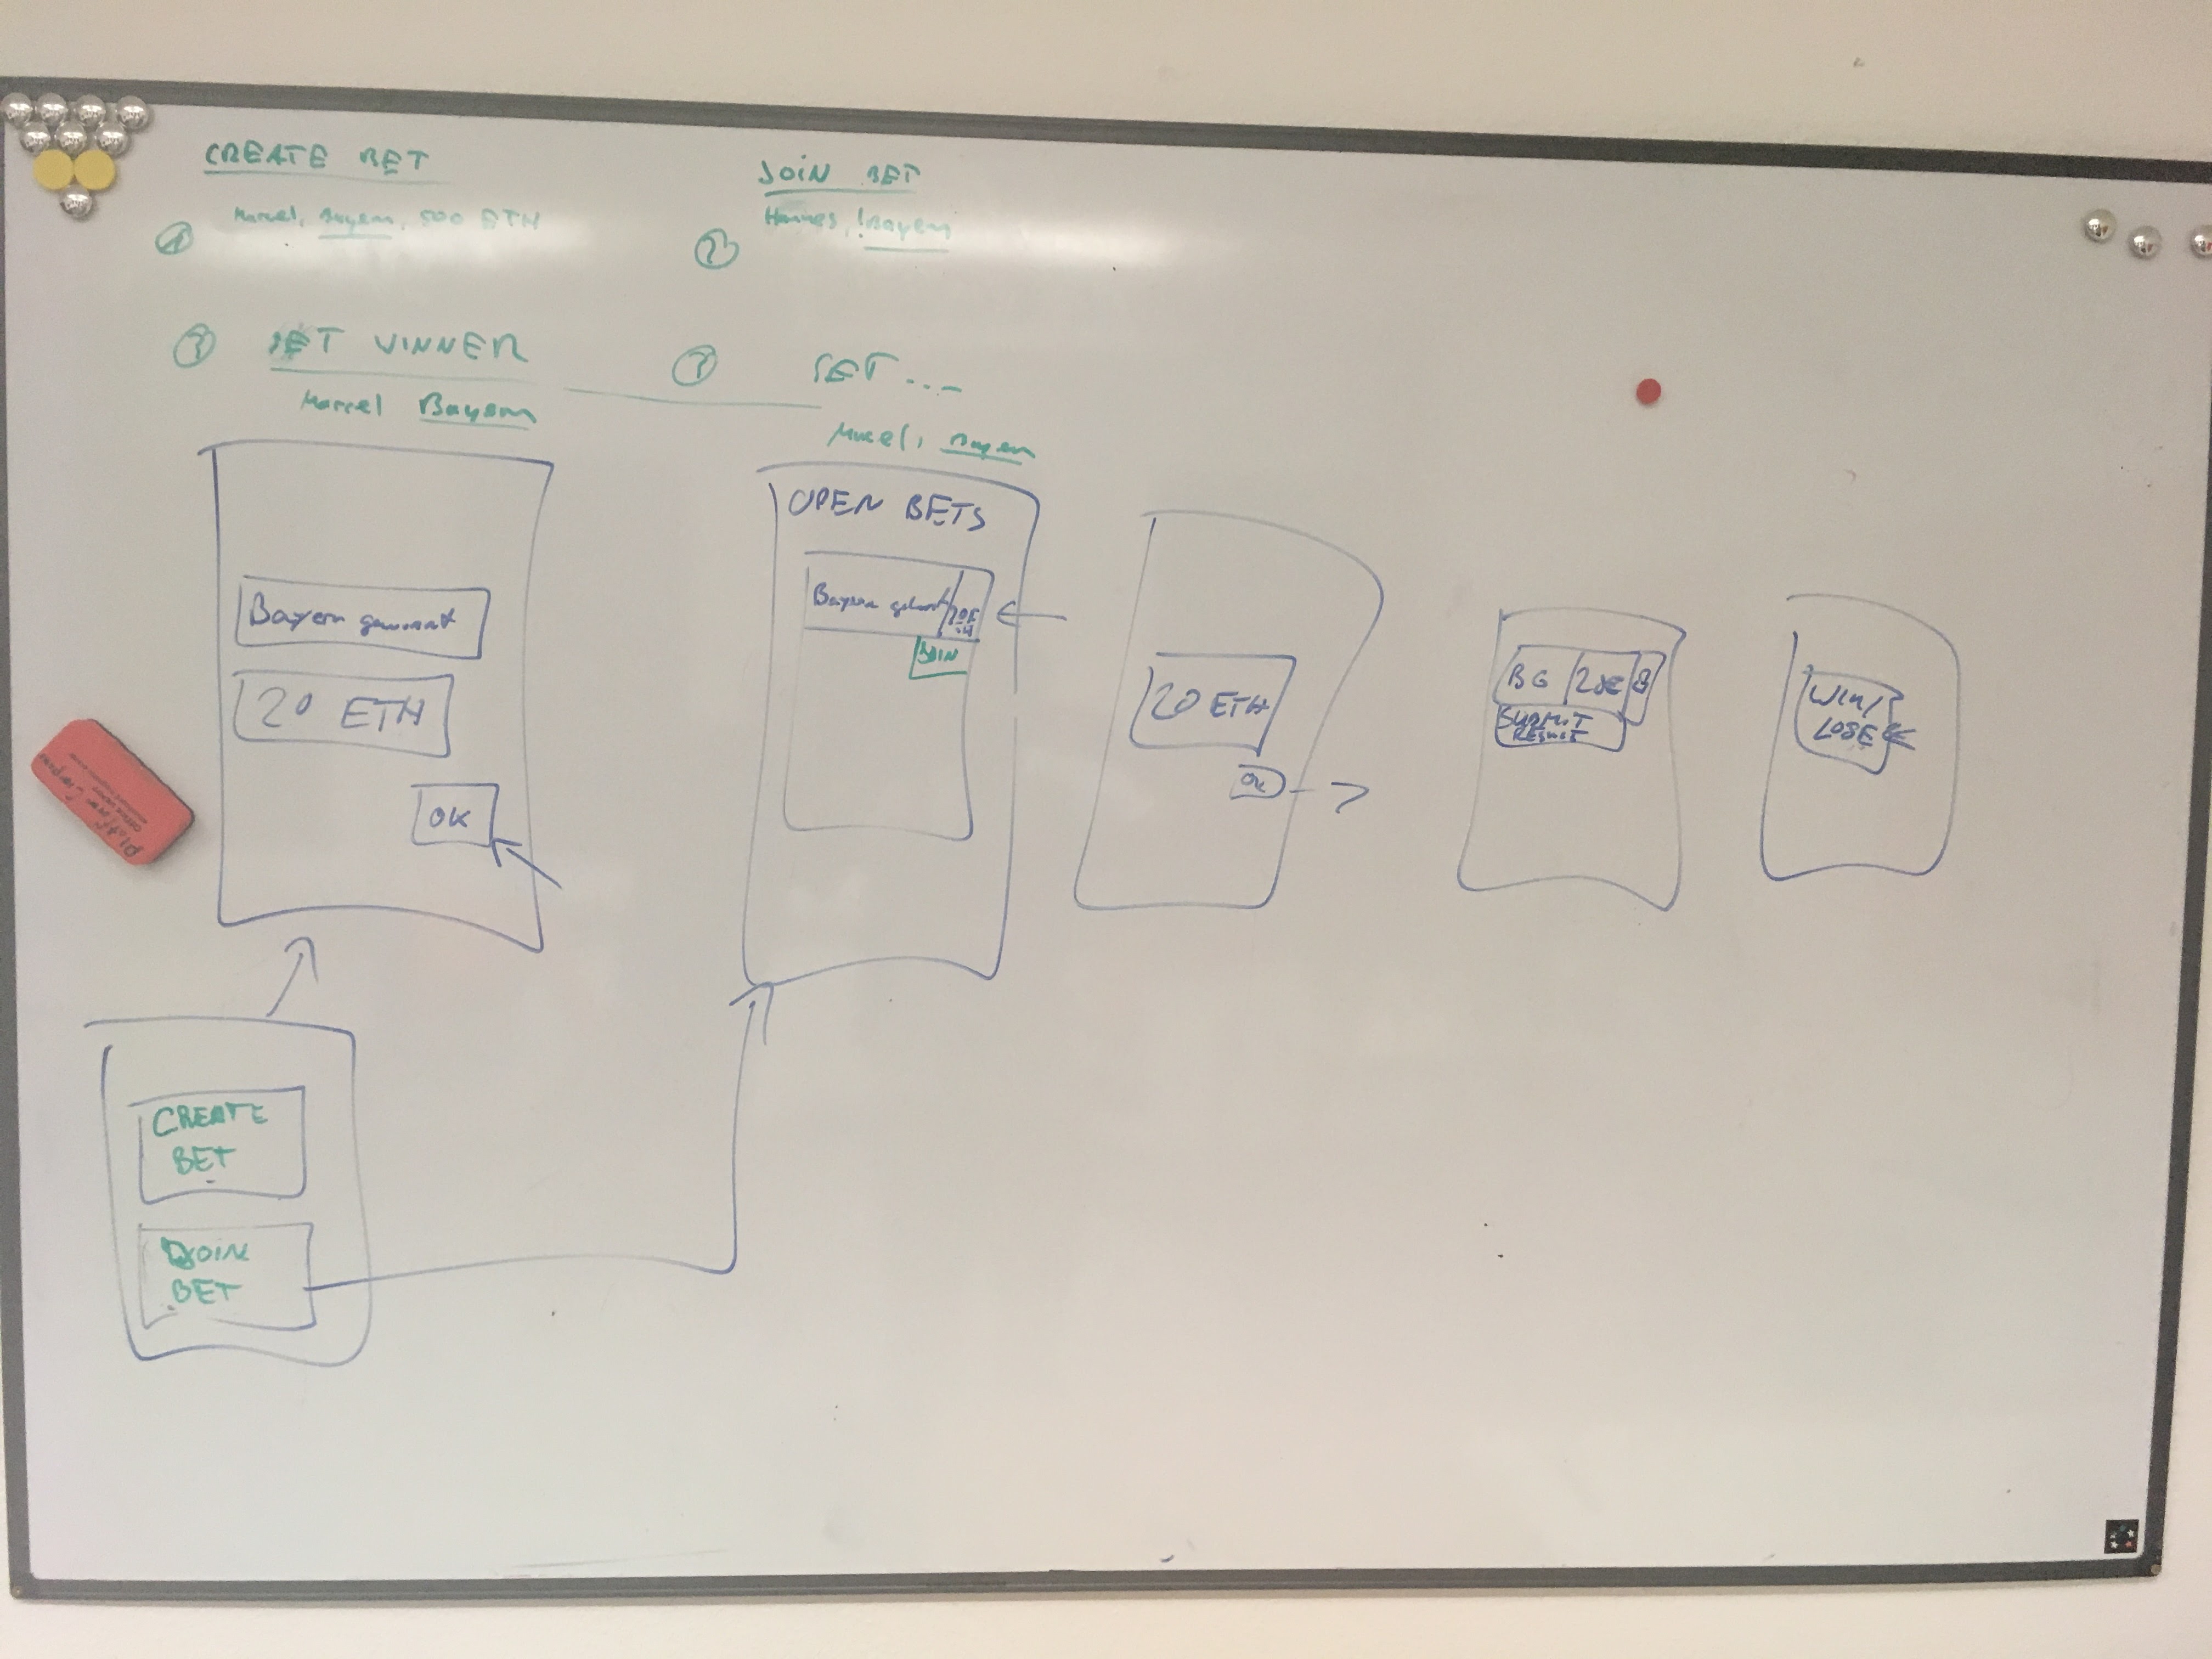 CREATE BET
Marcel, Bayern, 500 ETH
1
JOIN BET
Hannes, !Bayern
2
3 SET WINNER
Marcel Bayern
3 SET...
Marcel, Bayern
Bayern gewinnt
20 ETH
OK
OPEN BETS
Bayern
JOIN
20 ETH
OK
BG
SUBMIT
RESULT
WIN/
LOSE
CREATE
BET
JOIN
BET